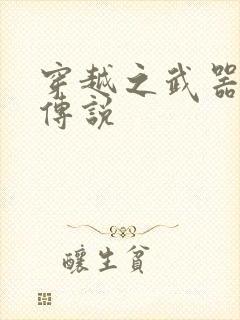 穿越之武器
傳說
釀生貧